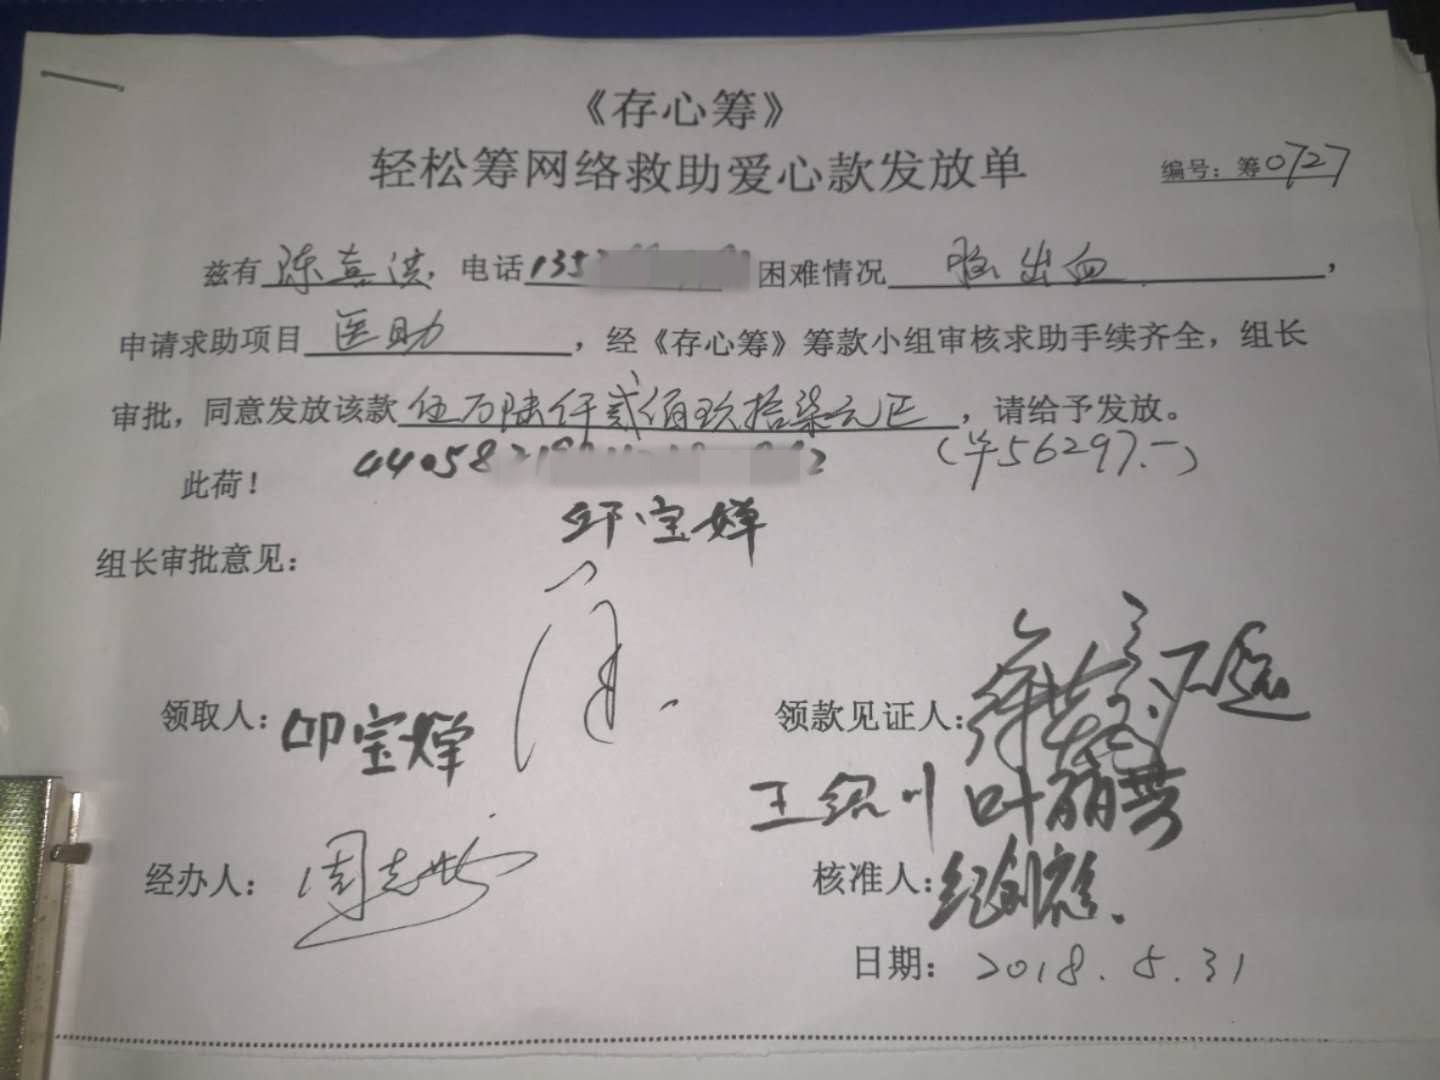 《存心筹》
轻松筹网络救助爱心款发放单
编号：筹0727
兹有 陈喜洪，电话 135 困难情况 脑出血，
申请求助项目 医助，经《存心筹》筹款小组审核求助手续齐全，组长
审批，同意发放该款 伍万陆仟贰佰玖拾柒元正，请给予发放。
(￥56297.-)
此荷！ 44058
邱宝婵
组长审批意见：
领取人：邱宝婵 领款见证人：
王绍川
经办人：周志 核准人：
日期：2018.5.31